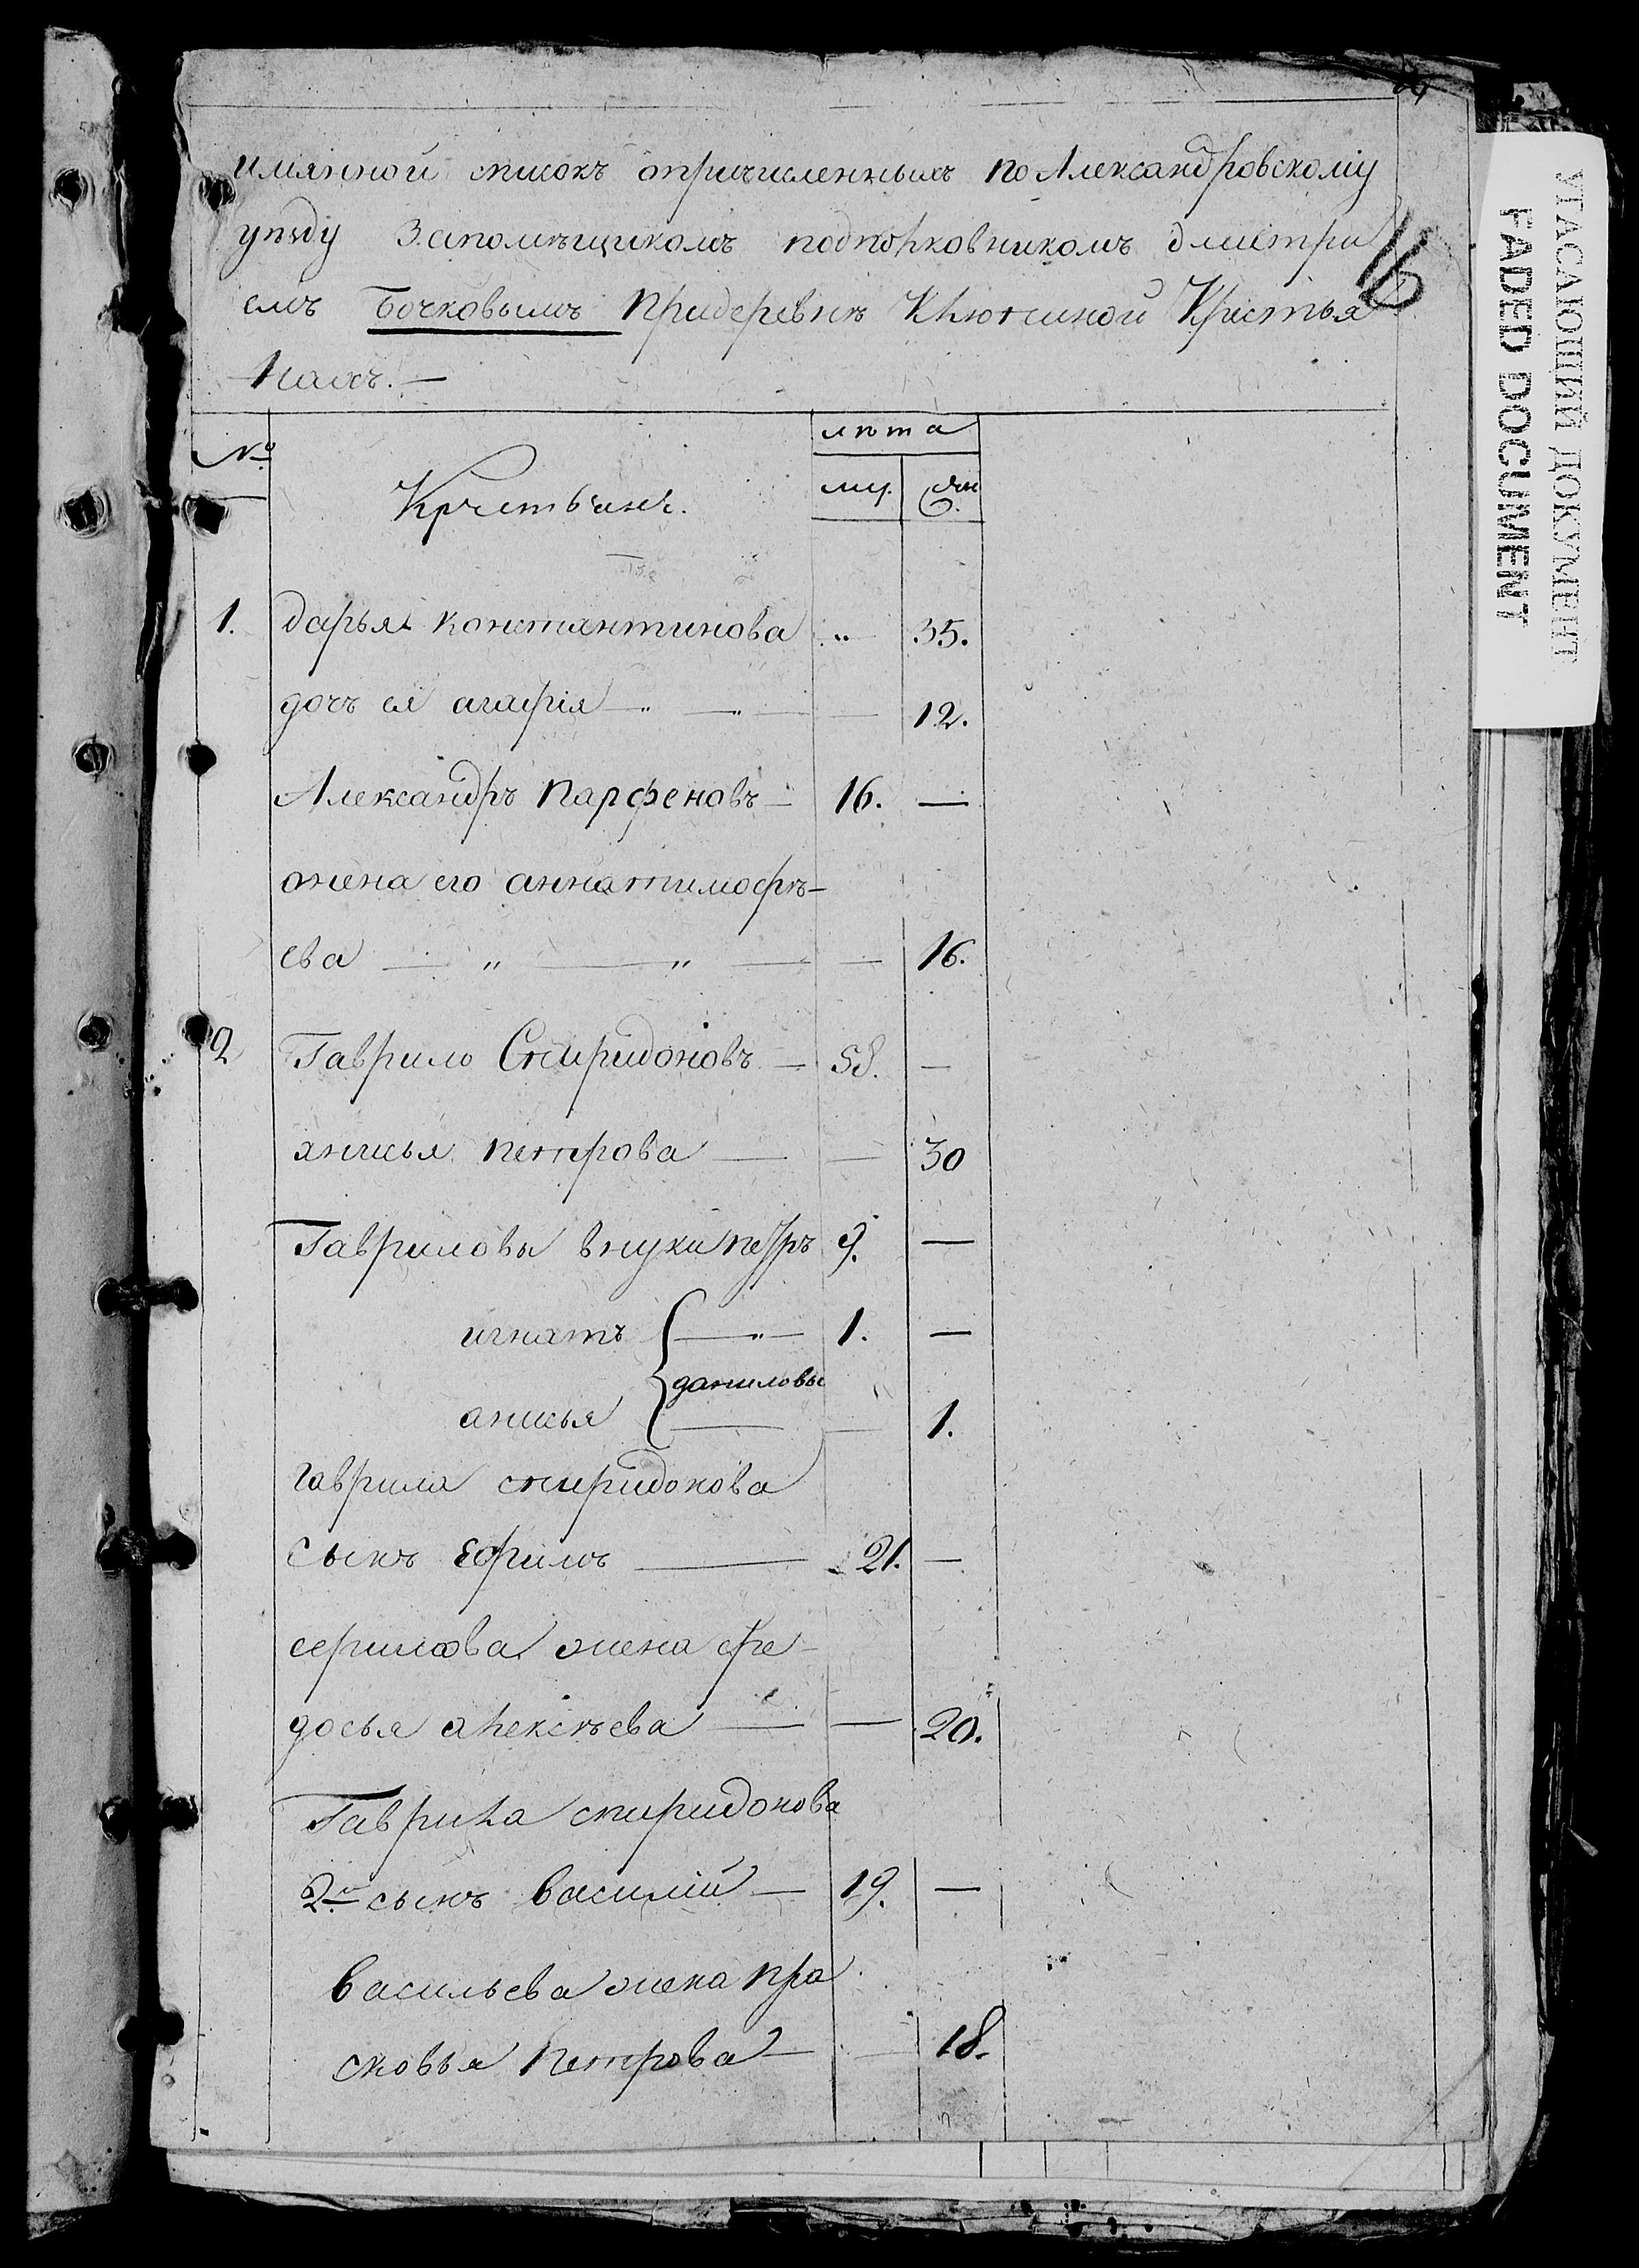 имянной списокъ опричисленныхъ по Александровскому
уѣзду Запомѣщикомъ подполковникомъ дмитри
емъ Бочковымъ Придеревнѣ Клюкиной Кристья
нахъ. —
№ лѣта
Кристьянѣ. му. жен.
1. дарья константинова " 35.
дочь ея агафія — " — " — — 12.
Александръ Парфеновъ — 16. —
жена его анна тимофѣ-
ева — " — " — — 16.
2 Гаврило Спиридоновъ — 58. —
анисья петрова — — 30
Гавриловы внуки петръ 9. —
игнатъ — " — 1. —
даниловы
анисья — — 1.
гаврила спиридонова
сынъ ефимъ — 21. —
ефимова жена фе-
досья алексѣева — — 20.
Гаврила спиридонова
2й сынъ василій — 19. —
васильева жена пра
сковья петрова — — 18.
16
УГАСАЮЩИЙ ДОКУМЕНТ
FADED DOCUMENT